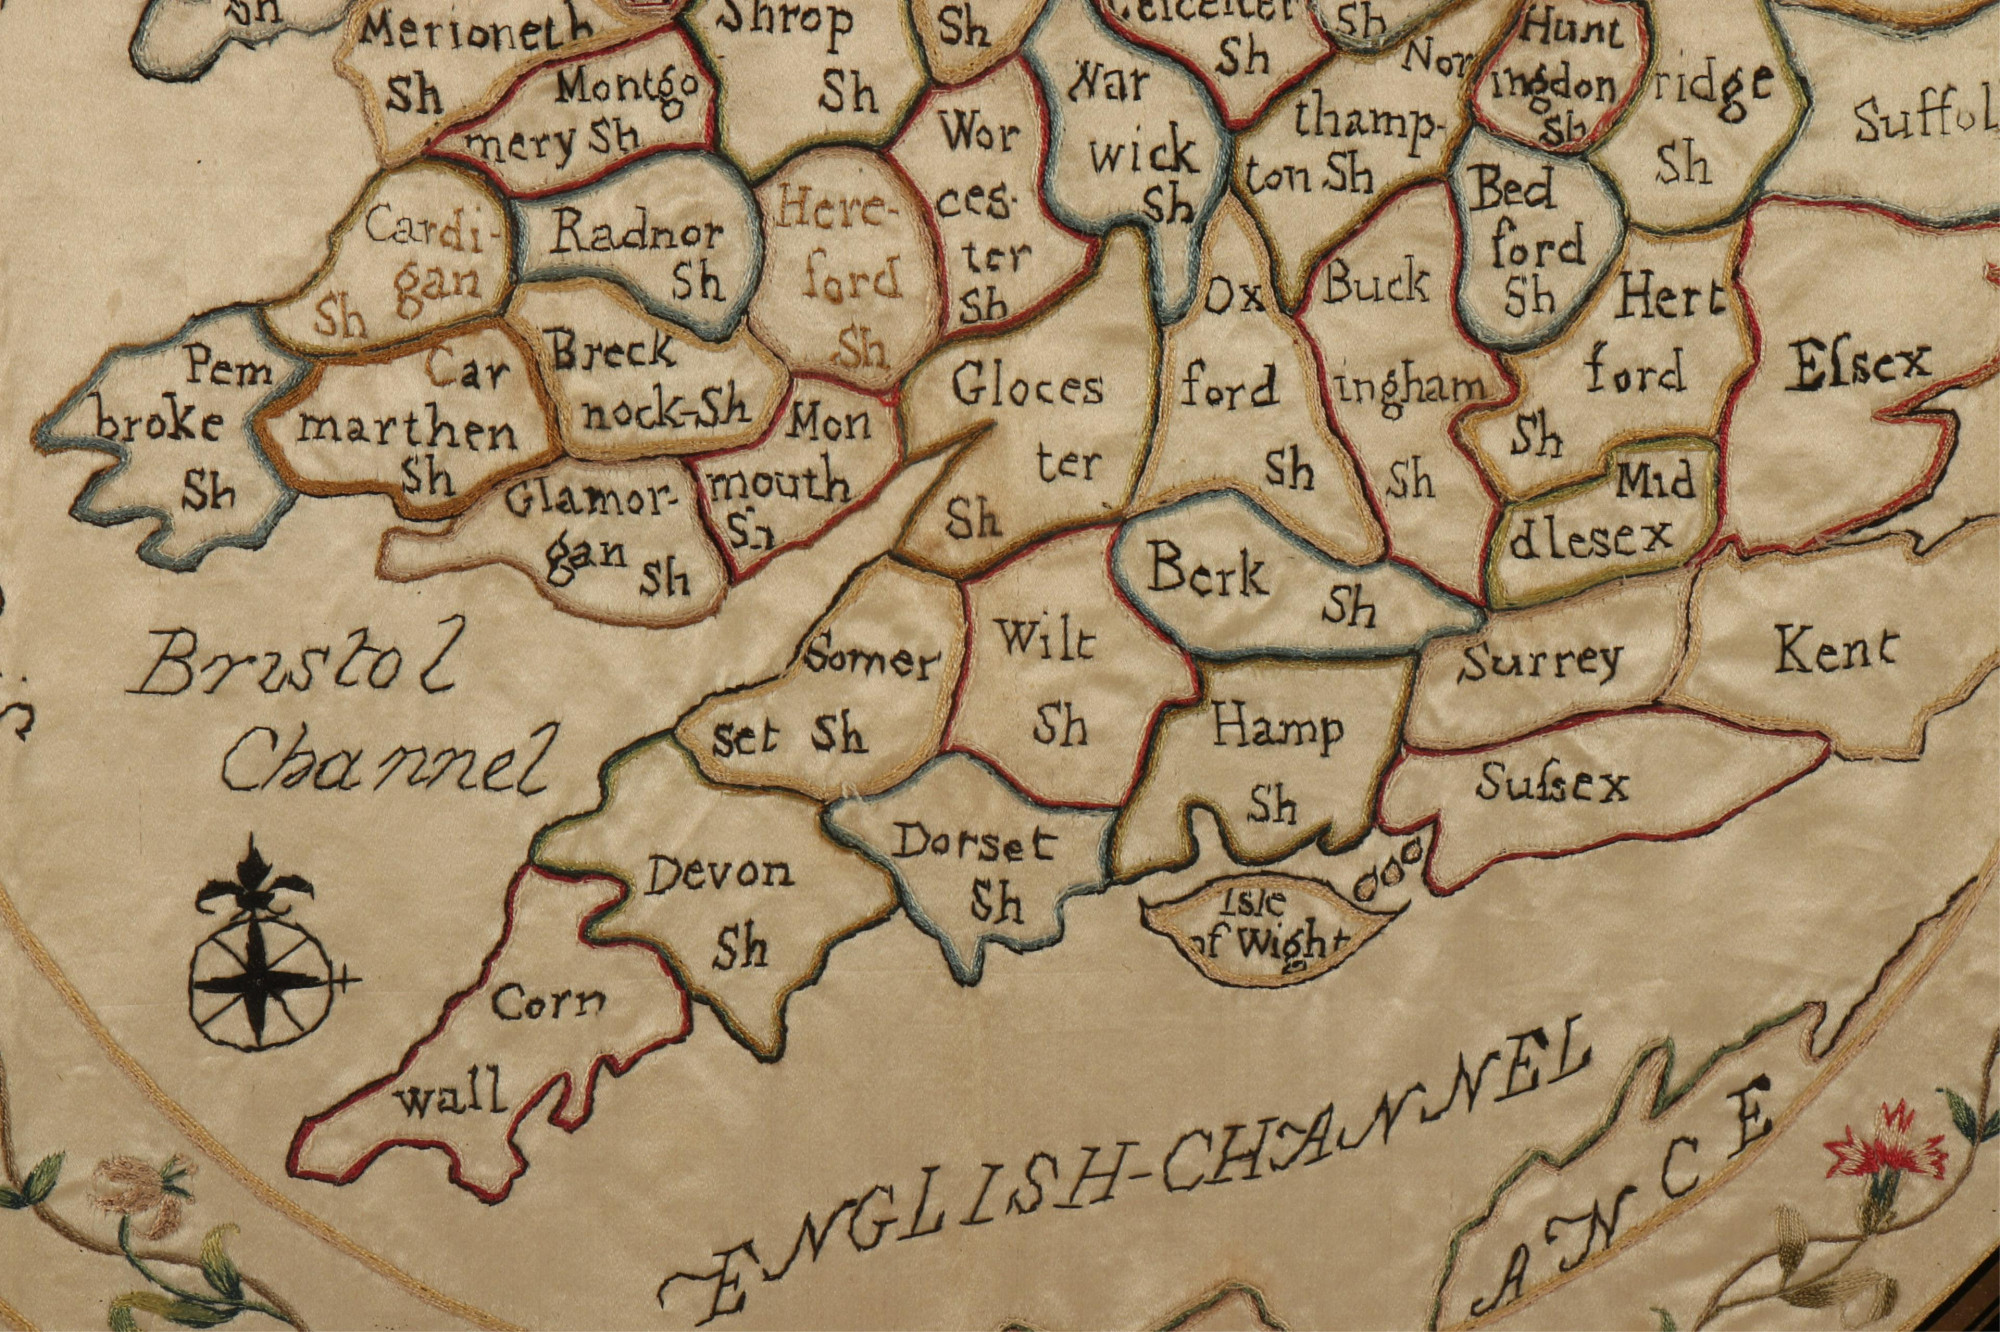 Sh
Merioneth
Sh
Montgo
mery Sh
Shrop
Sh
Sh
Wor
ces-
ter
Sh
War
wick
Sh
Leicester
Sh
Sh
Nor
thamp-
ton Sh
Hunt
ingdon
Sh
ridge
Sh
Suffol
Cardi-
gan
Sh
Radnor
Sh
Here-
ford
Sh
Bed
ford
Sh
Pem
broke
Sh
Car
marthen
Sh
Breck
nock-Sh
Glamor-
gan
Sh
Mon
mouth
Sh
Gloces
ter
Sh
Ox
ford
Sh
Buck
ingham
Sh
Hert
ford
Sh
Mid
dlesex
Eſsex
Berk
Sh
Bristol
Channel
Somer
set Sh
Wilt
Sh
Hamp
Sh
Surrey
Kent
Suſsex
Devon
Sh
Dorset
Sh
Isle
of Wight
Corn
wall
ENGLISH-CHANNEL
ANCE